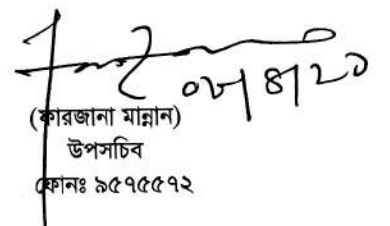 ০৮|৪|২০
(ফারজানা মান্নান)
উপসচিব
ফোনঃ ৯৫৭৫৫৭২